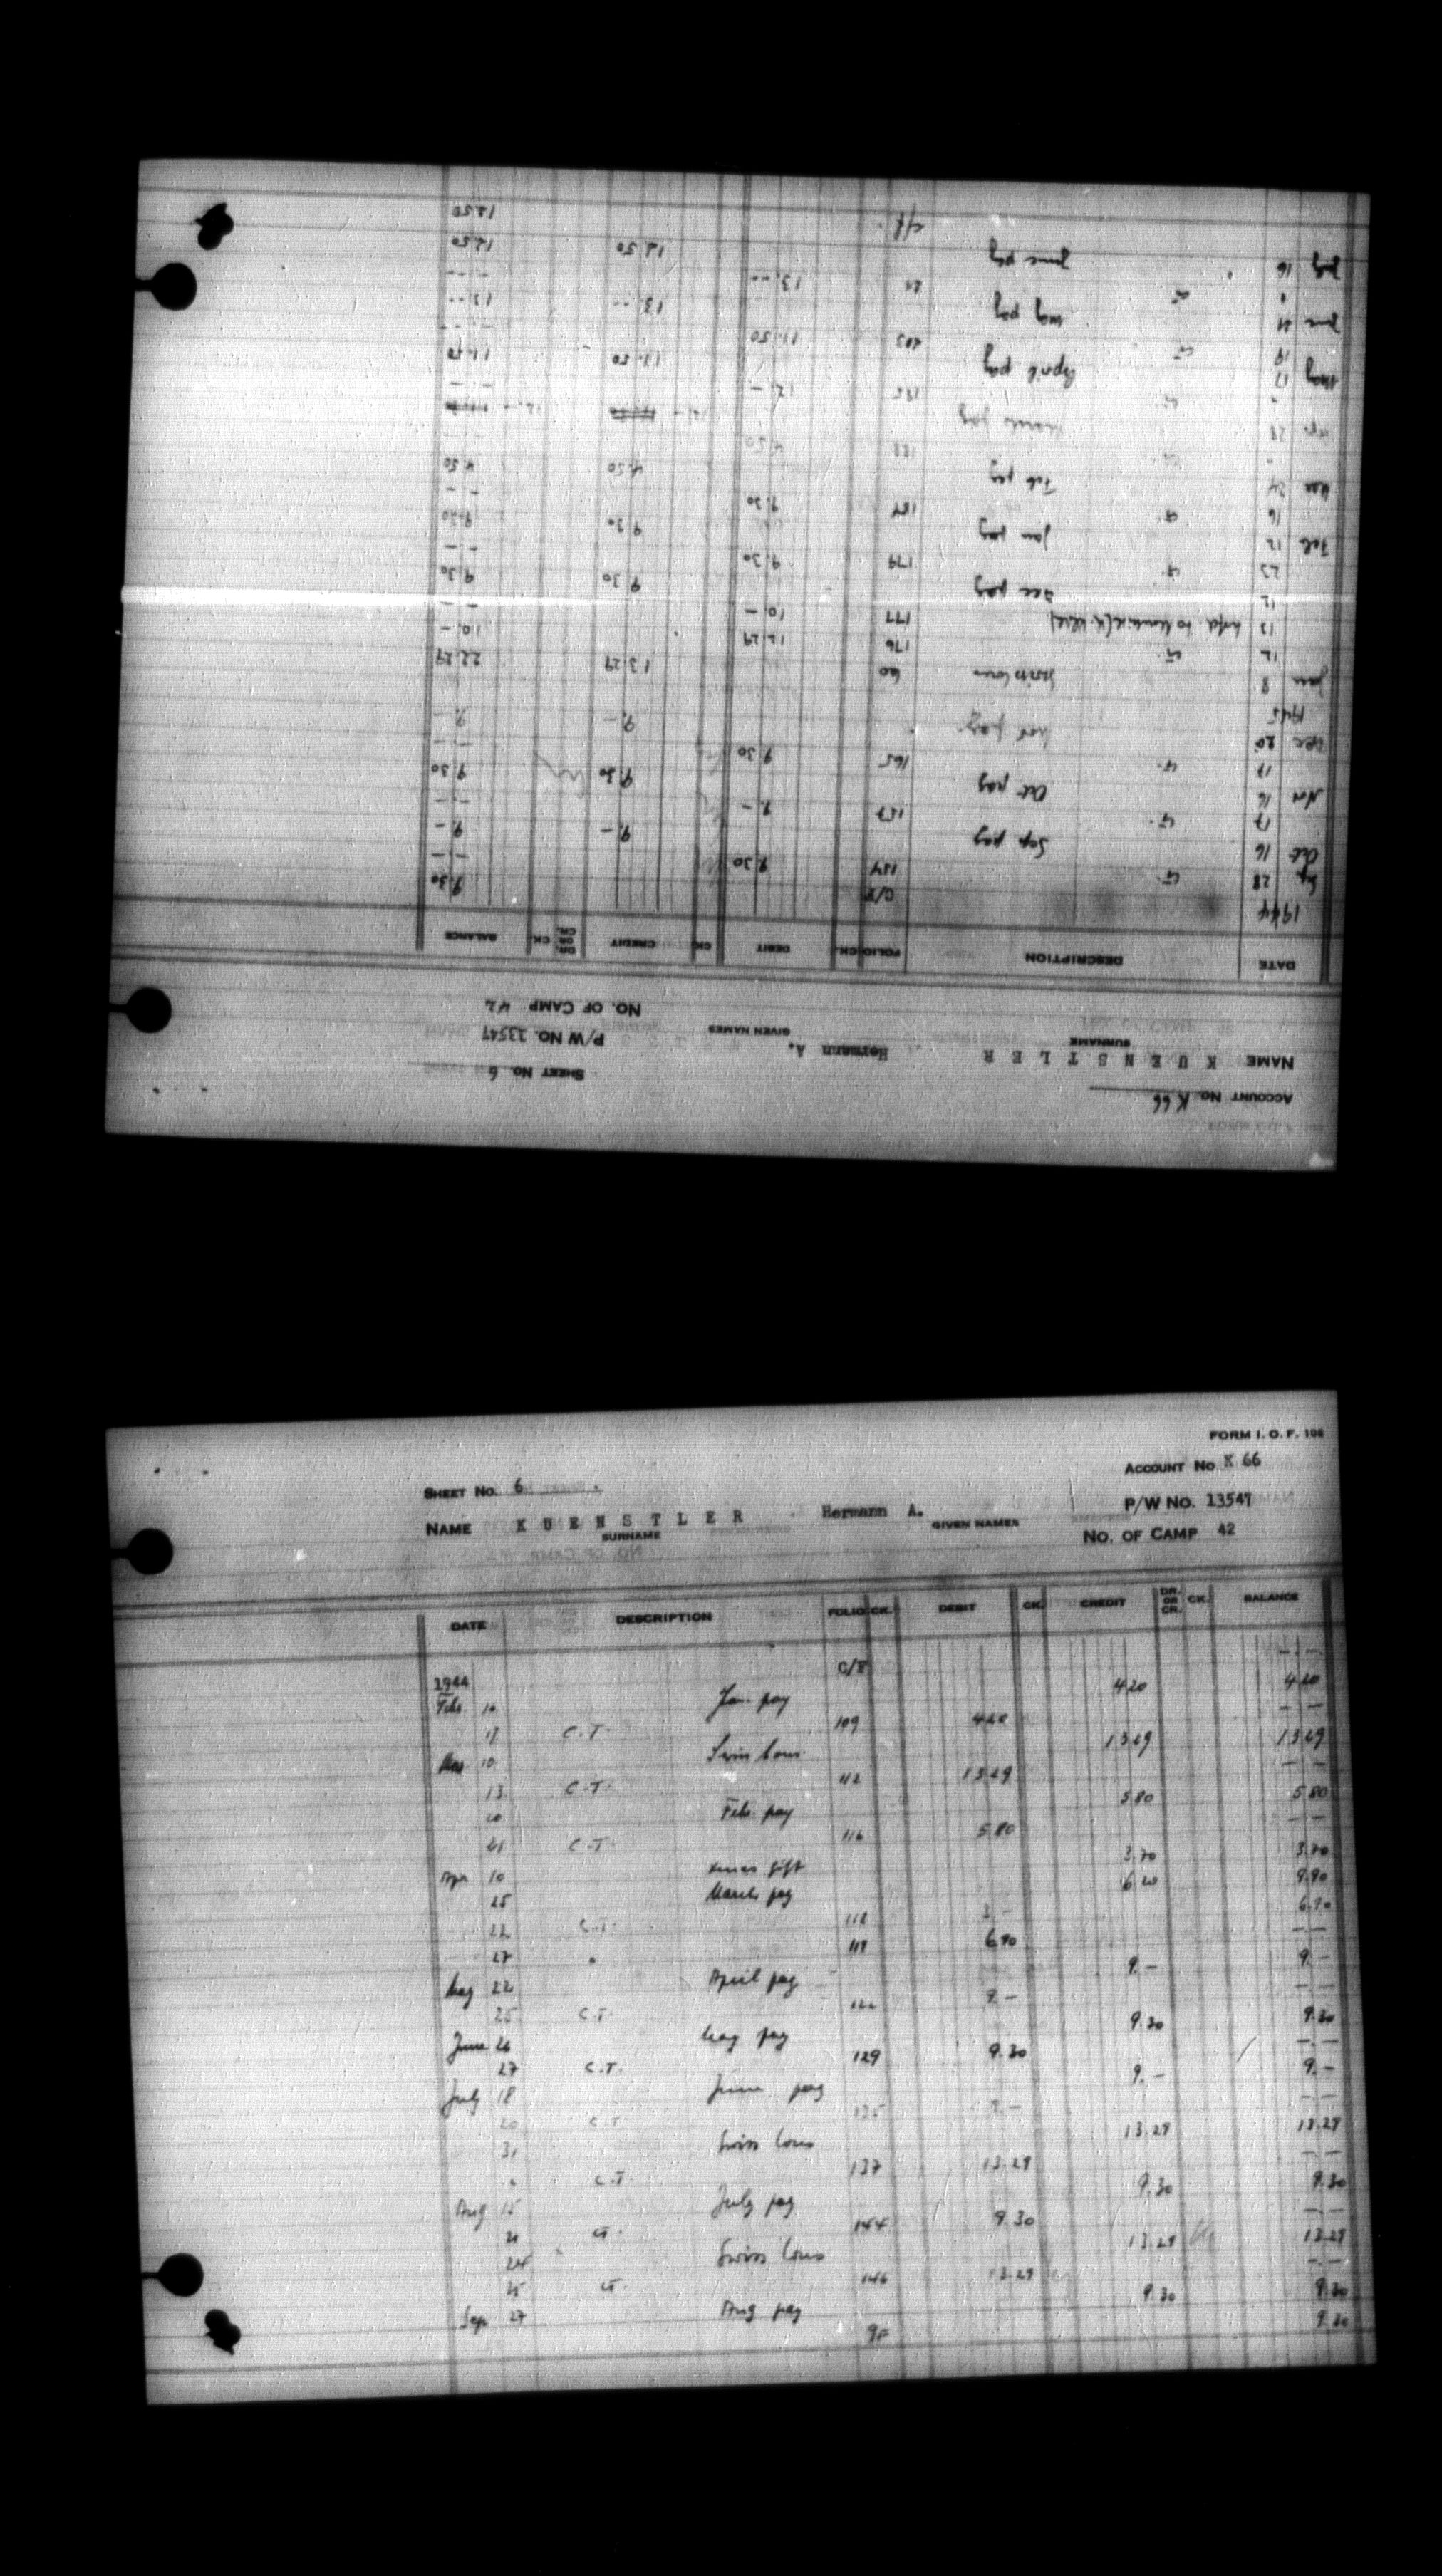 FORM I. O. F. 106
SHEET NO. 6 ACCOUNT NO K 66
NAME K U E N S T L E R Hermann A. P/W NO. 13547
SURNAME GIVEN NAMES NO. OF CAMP 42
DATE DESCRIPTION FOLIO CK. DEBIT CK. CREDIT DR. OR CR. CK. BALANCE
1944 C/F -.-
Feb. 16 Jan. pay 4.20 4.20
17 C.T. 109 4.20 - -
Mar 10 Swiss loan 13.29 13.29
13 C.T. 112 13.29 - -
20 Feb. pay 5.80 5.80
21 C.T. 116 5.80 - -
Apr 10 xmas gift 3.70 3.70
25 March pay 6.20 9.90
22 C.T. 118 6.90
27 " 119 6.90 - -
May 22 April pay 9.- 9.-
25 C.T. 122 9.- - -
June 26 May pay 9.30 9.30
27 C.T. 129 9.30 - -
July 18 June pay 9.- 9.-
20 C.T. 135 9.- - -
31 Swiss loan 13.29 13.29
" C.T. 137 13.29 - -
Aug 15 July pay 9.30 9.30
21 CT. 144 9.30 - -
24 Swiss loan 13.29 13.29
25 CT. 146 13.29 - -
Sep 27 Aug pay 9.30 9.30
9.30
ACCOUNT NO. K 66 SHEET NO. 6
NAME K U E N S T L E R Hermann A. P/W NO. 13547
SURNAME GIVEN NAMES NO. OF CAMP 42
DATE DESCRIPTION FOLIO CK. DEBIT CK. CREDIT DR. OR CR. CK. BALANCE
1944 C/F 9.30
Sep 28 CT. 154 9.30 - -
Oct 16 Sep pay 9.- 9.-
17 CT. 157 9.- - -
Nov 16 Oct pay 9.30 9.30
17 CT. 165 9.30 - -
Dec 20 Nov pay 9.- 9.-
1945
Jan 8 Swiss loan 60 13.29 22.29
12 CT. 176 12.29 10.-
13 177 10.- - -
12 Dec pay 9.30 9.30
23 CT. 179 9.30 - -
Feb 12 Jan pay 9.30 9.30
16 CT. 184 9.30 - -
Mar 24 Feb pay 4.50 4.50
188 4.50 - -
Apr 28 March pay 12.- 12.-
" CT 195 12.- - -
May 17 April pay 11.50 11.50
19 CT 203 11.50 - -
June 21 May pay 13.-- 13.--
" CT 21 13.-- - -
July 16 June pay 12.50 12.50
c/f. 12.50